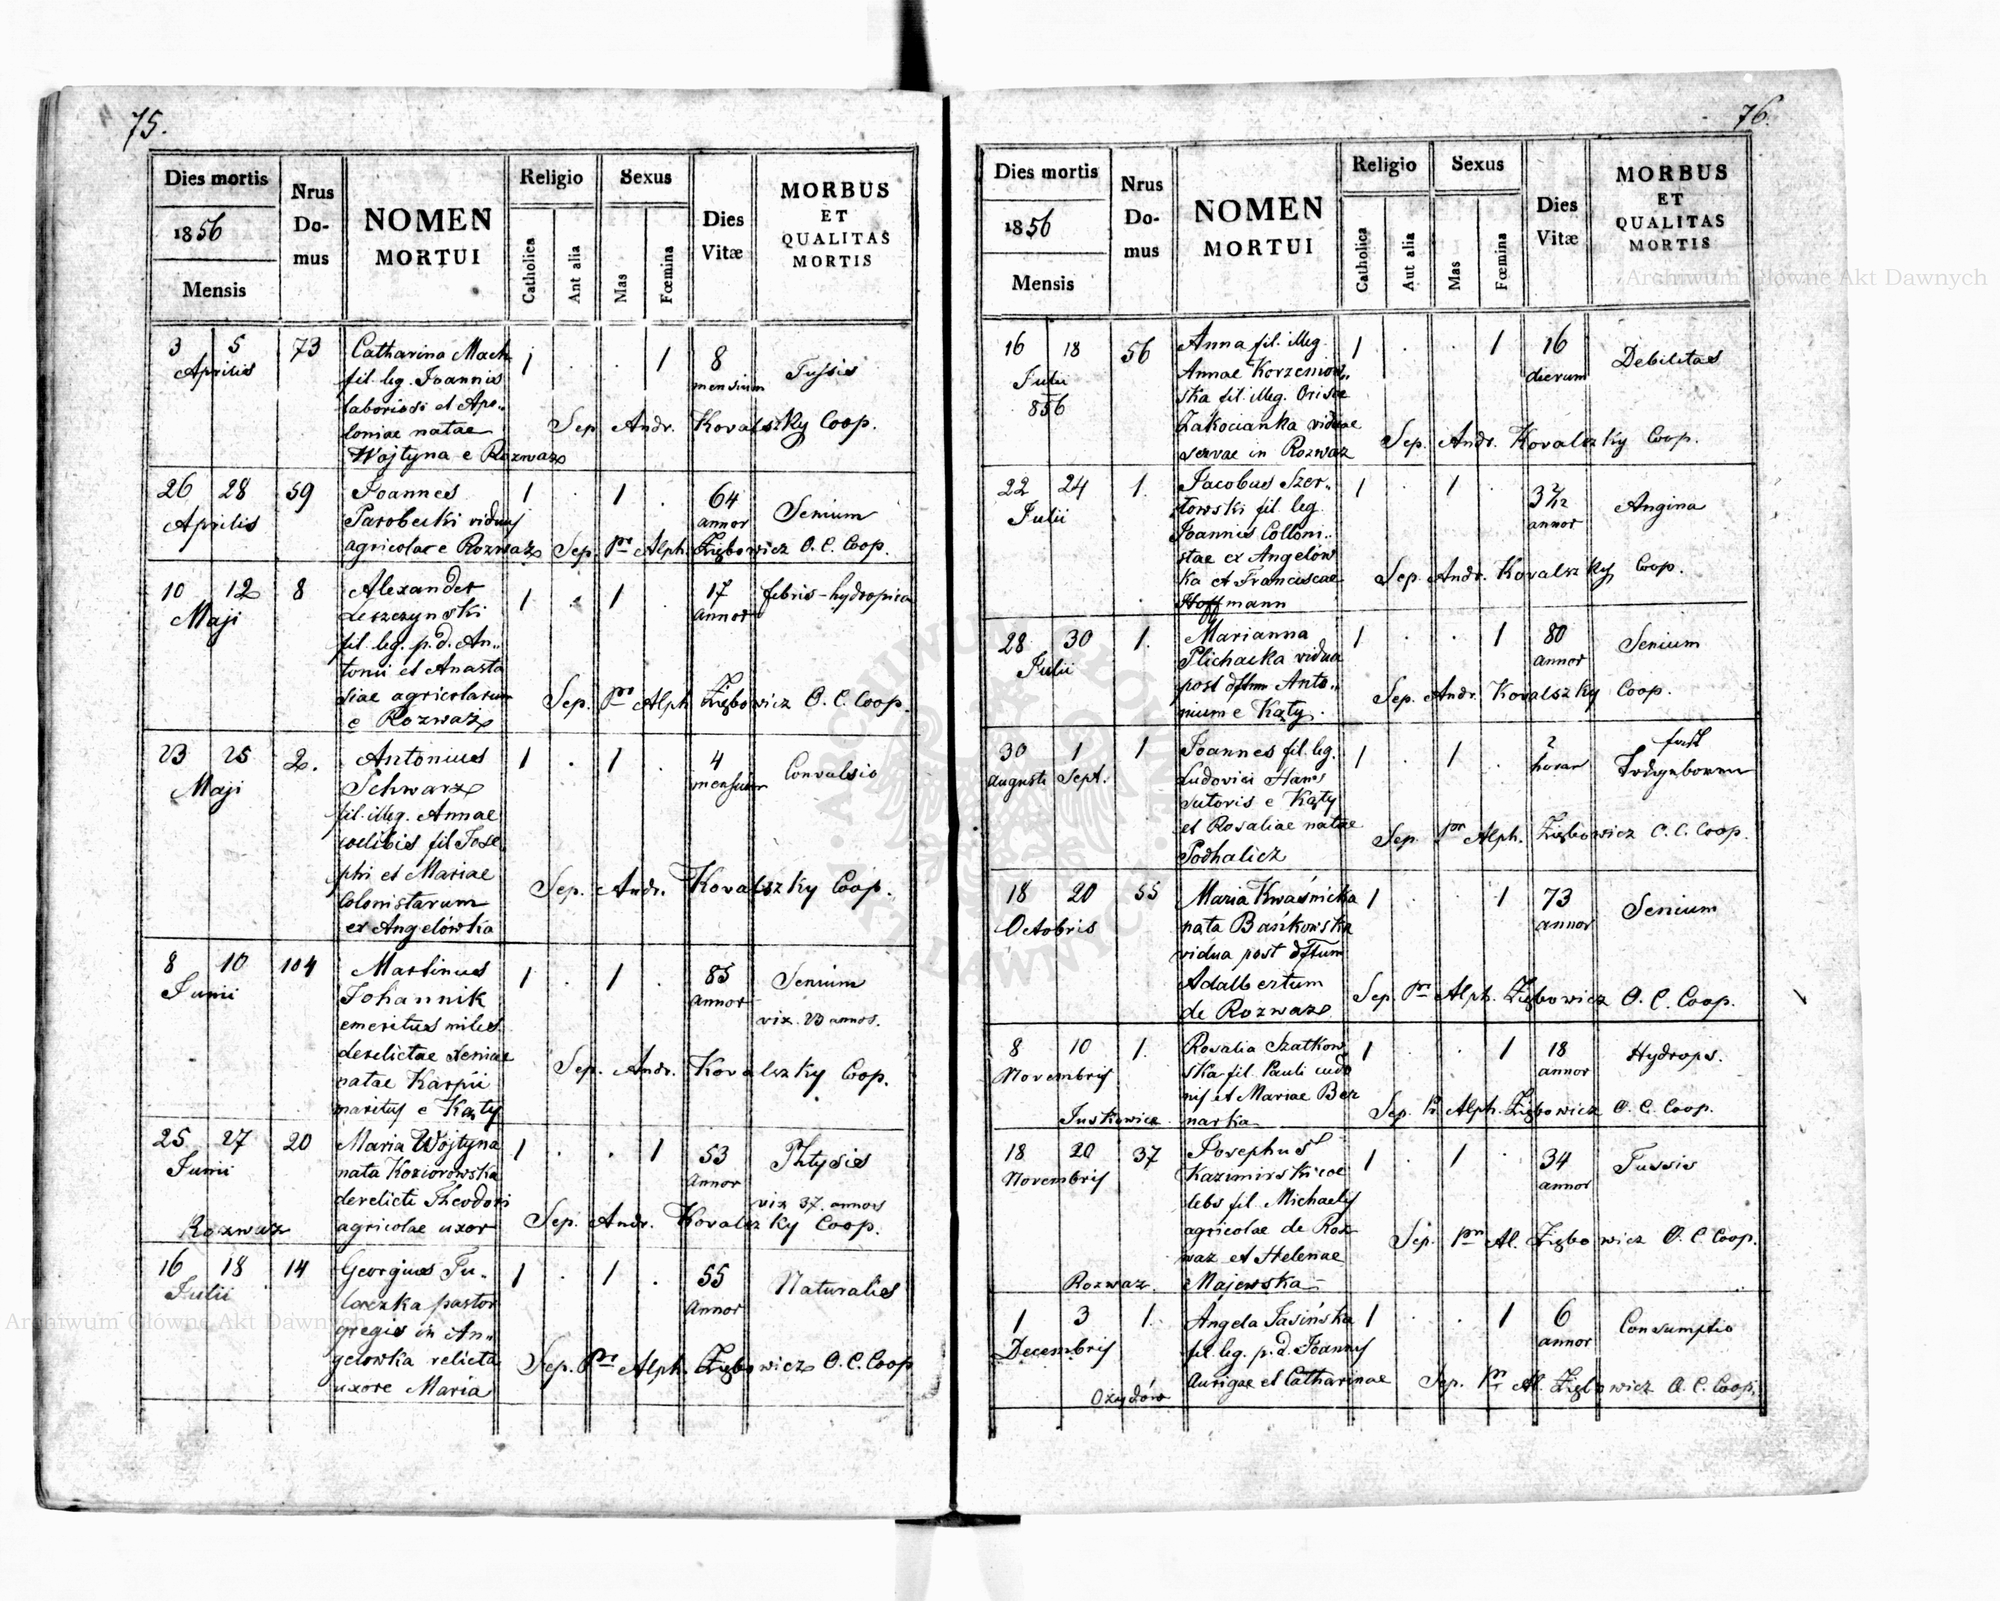 75.
Dies mortis
1856
Mensis
Nrus Do-mus
NOMEN
MORTUI
Religio
Catholica
Aut alia
Sexus
Mas
Fœmina
Dies Vitæ
MORBUS
ET
QUALITAS
MORTIS
3 5 73 Catharina Mach 1 . . 1 8 Tussis
Aprilis fil. leg. Joannis mensium
laboriosi et Apo-
loniae natae Sep. Andr. Kovalszky Coop.
Wojtyna e Rozwaz
26 28 59 Joannes 1 . 1 . 64 Senium
Aprilis Parobecki viduus annor
agricola e Rozwaz Sep. Pr Alph. Ziębowicz O. C. Coop.
10 12 8 Alexander 1 . 1 . 17 febris-hydropica
Maji Leszczynski annor
fil. leg. p. d. An-
tonii et Anasta
siae agricolarum Sep. Pr Alph Ziębowicz O. C. Coop.
e Rozwaz
23 25 2. Antonius 1 . 1 . 4 Convulsio
Maji Schwarz mensium
fil. illeg. Annae
coelibis fil Jose
phi et Mariae Sep. Andr. Kovalszky Coop.
Colonistarum
ex Angelówka
8 10 104 Martinus 1 . 1 . 85 Senium
Junii Johannik annor
emeritus miles vix. 23 annos.
derelictae Xeniae Sep. Andr. Kovalszky Coop.
natae Karpii
maritus e Kąty
25 27 20 Maria Wojtyna 1 . . 1 53 Phtysis
Junii nata Koziorowska annor
derelicti Theodori vix 37. annos
Rozwaz agricolae uxor Sep. Andr. Kovalszky Coop.
16 18 14 Georgius Tu- 1 . 1 . 55 Naturalis
Julii annor
gregis in An-
gelowka relicta Sep. Pr Alph. Ziębowicz O. C. Coop
uxore Maria
76.
Dies mortis
1856
Mensis
Nrus Do-mus
NOMEN
MORTUI
Religio
Catholica
Aut alia
Sexus
Mas
Fœmina
Dies Vitæ
MORBUS
ET
QUALITAS
MORTIS
16 18 56 Anna fil. illeg. 1 . . 1 16 Debilitas
Julii Annae Korzeniow- dierum
856 ska fil. illeg.
Zakocianka viduae Sep. Andr. Kovalszky Coop.
servae in Rozwaz
22 24 1. Jacobus Szer- 1 . 1 . 3 2/12 Angina
Julii towski fil leg annor
Joannis Colloni-
stae ex Angelów Sep. Andr. Kovalszky Coop.
ka et Franciscae
Hoffmann
28 30 1. Marianna 1 . . 1 80 Senium
Julii Plichacka vidua annor
post dftum Anto- Sep. Andr. Kovalszky Coop.
nium e Kąty.
30 1 1 Joannes fil. leg. 1 . 1 . 2
Augusti Sept. Ludovici Hans horar
sutoris e Kąty
et Rosaliae natae Sep. Pr Alph. Ziębowicz O. C. Coop.
Podhalicz
18 20 55 Maria Kwaśnicka 1 . . 1 73 Senium
Octobris nata Bańkowska annor
vidua post dftum
Adalbertum Sep. Pr Alph. Ziębowicz O. C. Coop.
de Rozwaz
8 10 1. Rosalia Szatkow 1 . . 1 18 Hydrops.
Novembris ska fil. Pauli annor
et Mariae Ber Sep. Pr Alph. Ziębowicz O. C. Coop.
Juskowice narka
18 20 37 Josephus 1 . 1 . 34 Tussis
Novembris Kazimirski coe annor
lebs fil. Michaelis
agricolae de Roz Sep. Pr Al. Ziębowicz O. C. Coop.
waz et Helenae
Rozwaz. Majewska
1 3 1. Angela Jasińska 1 . . 1 6 Consumptio
Decembris fil. leg. p. d. Joannis annor
Ożydów Aurigae et Catharinae Sep. Pr Al. Ziębowicz O. C. Coop.
Archiwum Główne Akt Dawnych
Archiwum Główne Akt Dawnych
ARCHIWUM GŁÓWNE AKT DAWNYCH